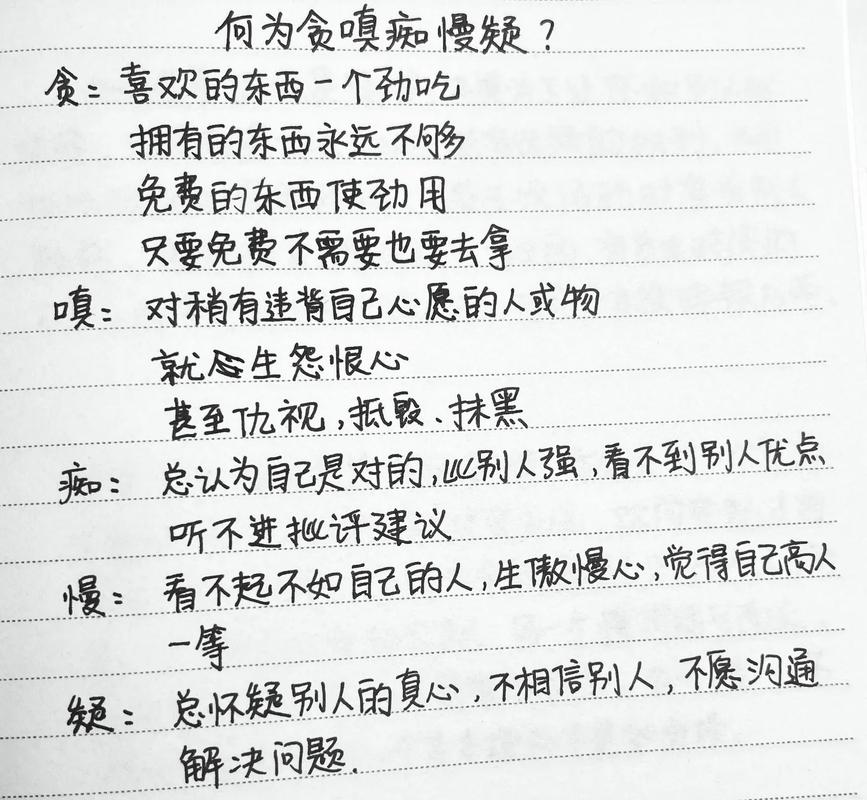 何为贪嗔痴慢疑？
贪：喜欢的东西一个劲吃
拥有的东西永远不够多
免费的东西使劲用
只要免费不需要也要去拿
嗔：对稍有违背自己心愿的人或物
就生怨恨心
甚至仇视，抵毁、抹黑
痴：总认为自己是对的，比别人强，看不到别人优点
听不进批评建议
慢：看不起不如自己的人，生傲慢心，觉得自己高人
一等
疑：总怀疑别人的真心，不相信别人，不愿沟通
解决问题.